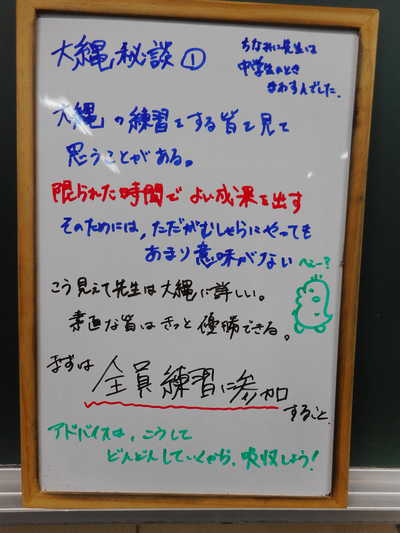 大縄秘談①
ちなみに先生は
中学生のとき
まわす人でした。
大縄の練習をする皆を見て
思うことがある。
限られた時間でよい成果を出す
そのためには、ただがむしゃらにやっても
あまり意味がない
へぇー?
こう見えて先生は大縄に詳しい。
素直な皆はきっと優勝できる。
まずは
全員練習に参加
すること。
アドバイスは、こうして
どんどんしていくから、吸収しよう!